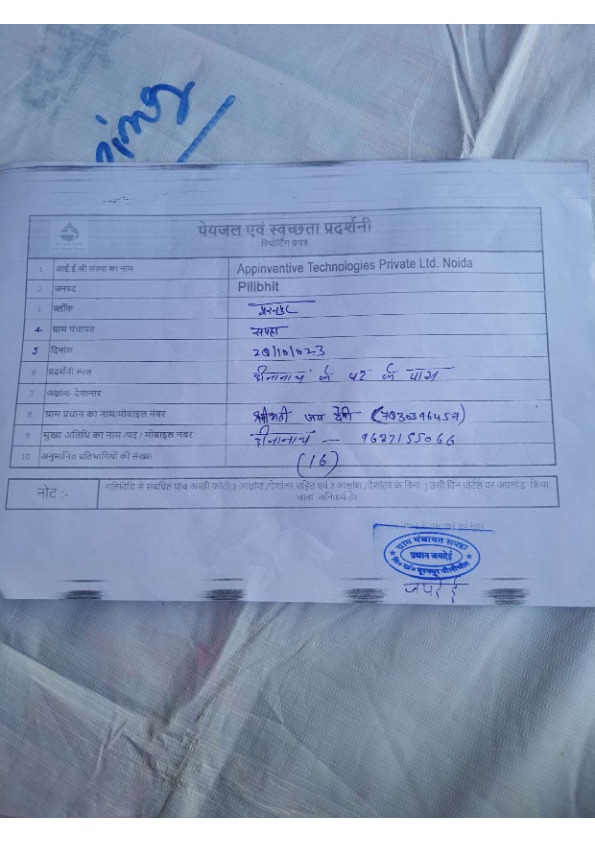 पेयजल एवं स्वच्छता प्रदर्शनी
रिपोर्टिंग प्रपत्र
1 आई.ई.सी संस्था का नाम Appinventive Technologies Private Ltd. Noida
2 जनपद Pilibhit
3 ब्लॉक
4 ग्राम पंचायत सपहा
5 दिनांक 20/10/023
6 प्रदर्शनी स्थल दीनानाथ के घर के पास
7 अक्षांश- देशान्तर
8 ग्राम प्रधान का नाम/मोबाइल नंबर श्रीमती जय देवी
9 मुख्य अतिथि का नाम /पद / मोबाइल नंबर दीनानाथ — 9627155066
10 अनुमानित प्रतिभागियों की संख्या (16)
नोट :- गतिविधि से संबंधित पांच अच्छी फोटो(3 अक्षांश /देशांतर सहित एवं 2 अक्षांश /देशांतर के बिना ) उसी दिन पोर्टल पर अपलोड किया
जाना अनिवार्य है।
ग्राम पंचायत सपहा
प्रधान जयदेई
वि० ख० पूरनपुर पीलीभीत
जयदेई